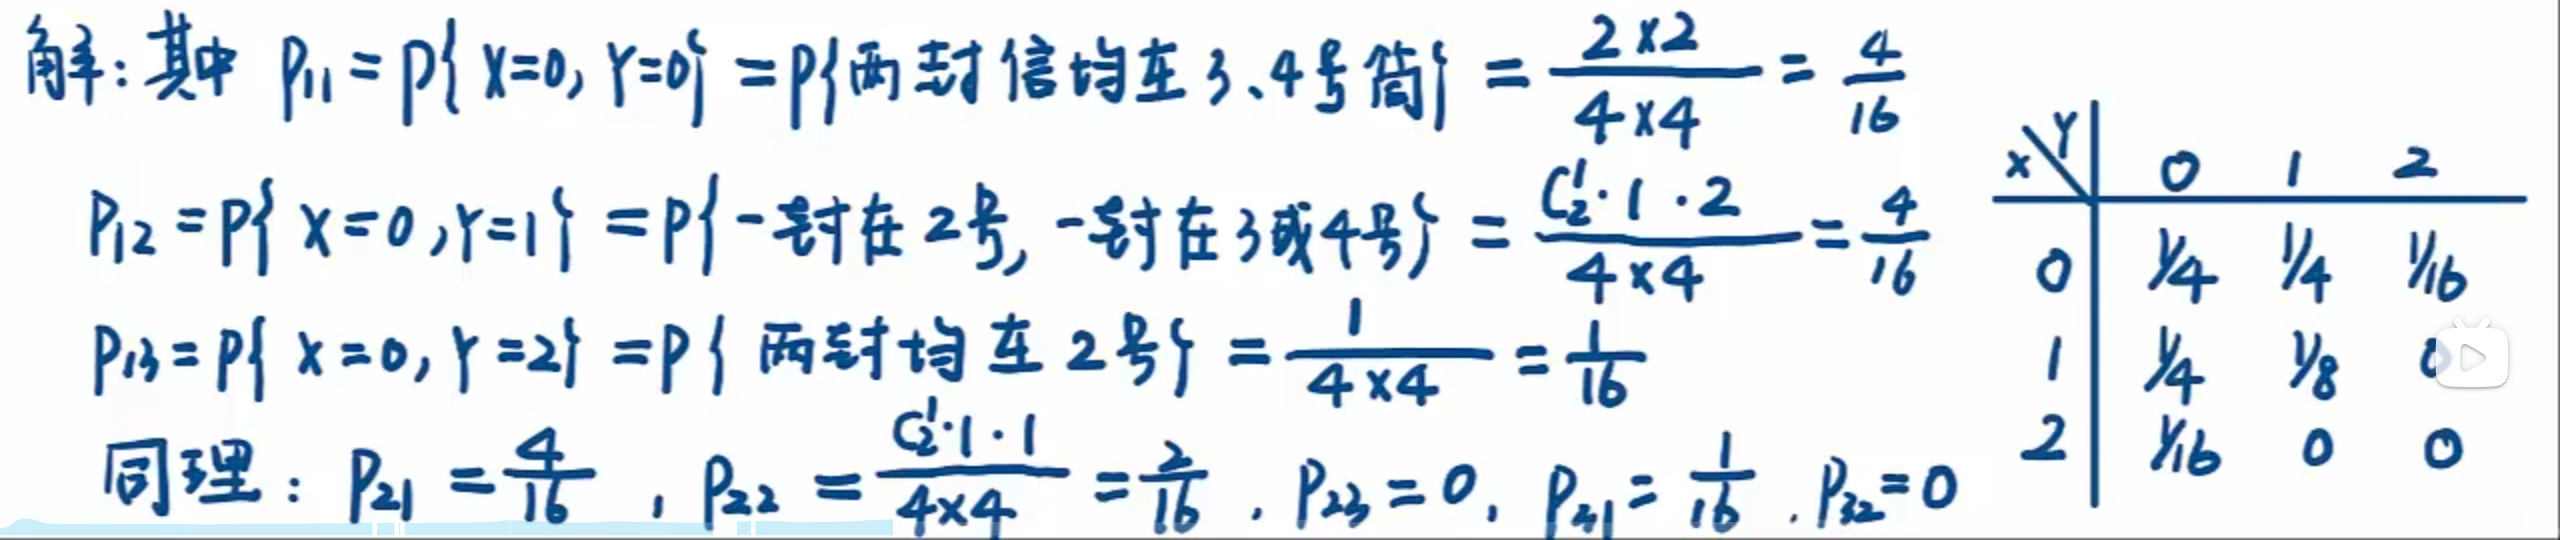 解：其中 P₁₁ = P{ X=0, Y=0} = P{两封信均在3、4号筒} = 2×2/4×4 = 4/16
P₁₂ = P{ X=0, Y=1} = P{一封在2号, 一封在3或4号} = C₂¹·1·2/4×4 = 4/16
P₁₃ = P{ X=0, Y=2} = P{ 两封均在2号} = 1/4×4 = 1/16
同理： P₂₁ = 4/16 , P₂₂ = C₂¹·1·1/4×4 = 2/16 . P₂₃ = 0, P₃₁ = 1/16 . P₃₂ = 0
X\Y 0 1 2
0 1/4 1/4 1/16
1 1/4 1/8 0
2 1/16 0 0